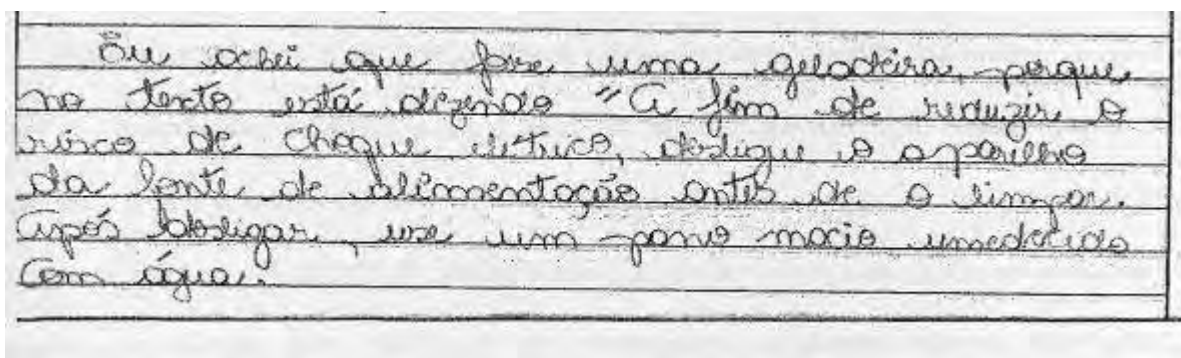 Eu achei que fose uma geladeira, porque
no texto está dizendo "A fim de reduzir o
risco de choque elétrico, desligue o aparelho
da fonte de alimentação antes de o limpar.
Após desligar, use um pano macio umedecido
com água.